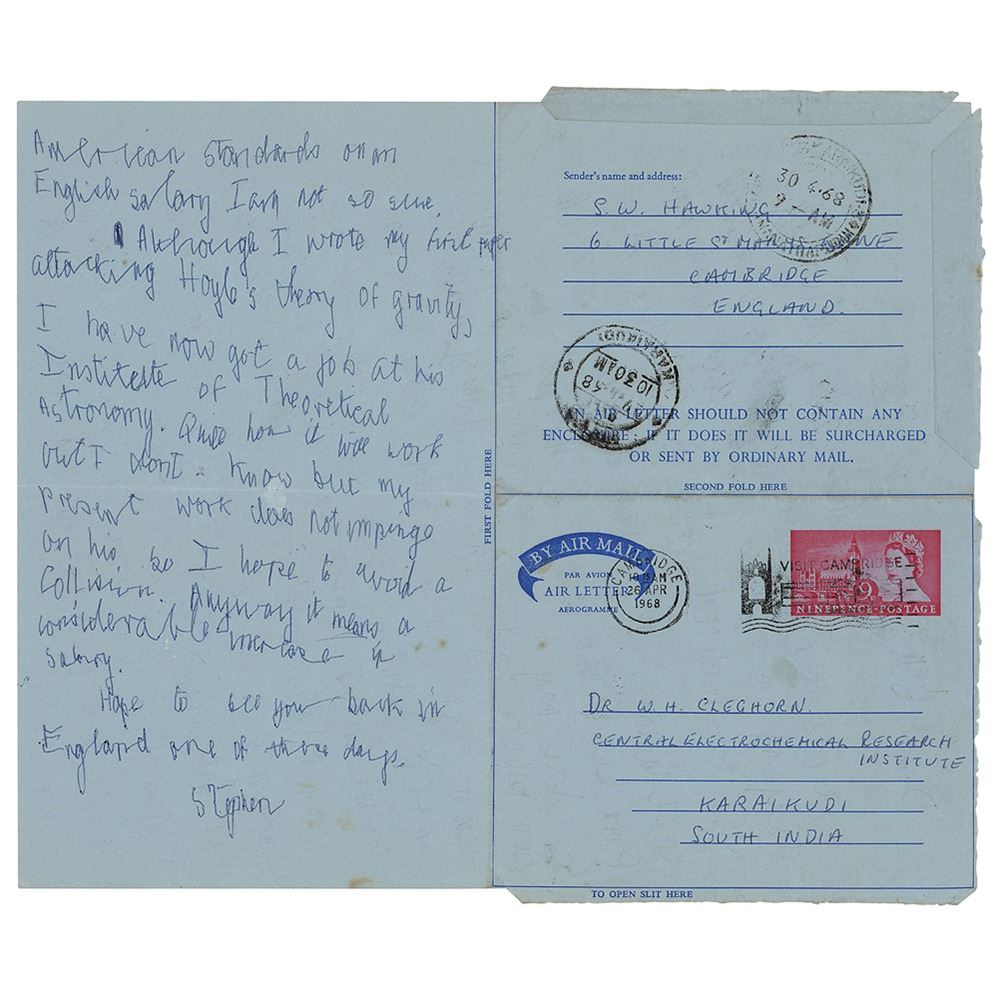 American standards on an
English salary I am not so sure.
Although I wrote my first paper
attacking Hoyle's theory of gravity,
I have now got a job at his
Institute of Theoretical
Astronomy. Quite how it will work
out I dont know but my
present work does not impinge
on his so I hope to avoid a
Collision. Anyway it means a
considerable increase in
salary.
Hope to see you back in
England one of these days.
Stephen
FIRST FOLD HERE
Sender's name and address:
S.W. HAWKING
6 LITTLE ST MARY'S LANE
CAMBRIDGE
ENGLAND.
30 4.68
9 - AM
KARAIKUDI
10 30 AM
AN AIR LETTER SHOULD NOT CONTAIN ANY
ENCLOSURE; IF IT DOES IT WILL BE SURCHARGED
OR SENT BY ORDINARY MAIL.
SECOND FOLD HERE
BY AIR MAIL
PAR AVION
AIR LETTER
AEROGRAMME
CAMBRIDGE
10 15 AM
26 APR
1968
VISIT CAMBRIDGE
9D
NINEPENCE·POSTAGE
DR W.H. CLEGHORN.
CENTRAL ELECTROCHEMICAL RESEARCH
INSTITUTE
KARAIKUDI
SOUTH INDIA
TO OPEN SLIT HERE